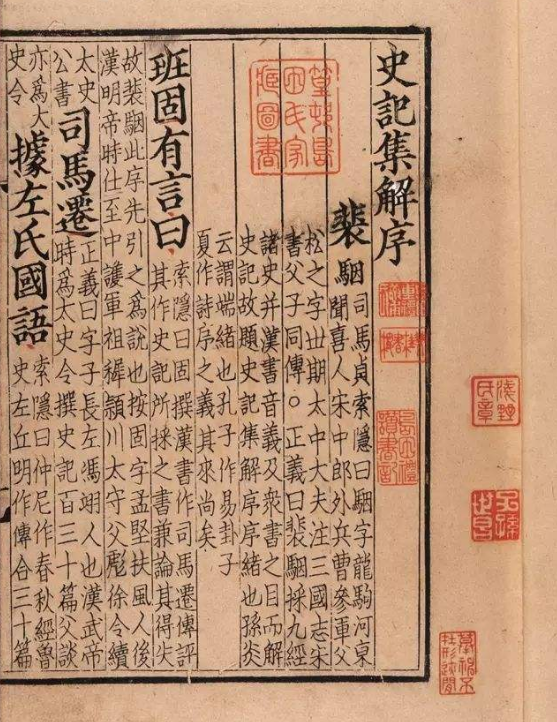 史記集解序
裴駰
司馬貞索隱曰駰字龍駒河東
聞喜人宋中郎外兵曹參軍父
松之字丗期太中大夫注三國志宋
書父子同傳○正義曰裴駰採九經
諸史并漢書音義及衆書之目而解
史記故題史記集解序序緒也孫炎
云謂端緒也孔子作易卦子
夏作詩序之義其來尚矣
班固有言曰
索隱曰固撰漢書作司馬遷傳評
其作史記所採之書兼論其得失
故裴駰此序先引之爲說也按固字孟堅扶風人後
漢明帝時仕至中護軍祖穉潁川太守父彪徐令續
太史
公書
司馬遷
正義曰字子長左馮翊人也漢武帝
時爲太史令撰史記百三十篇父談
亦爲大
史令
據左氏國語
索隱曰仲尼作春秋經魯
史左丘明作傳合三十篇
篁邨島
田氏家
藏圖書
淺野
氏章